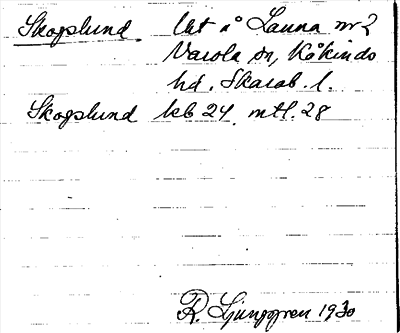 Skogslund. Ut å Launa nr 2
Varola sn, Kåkinds
hd. Skarab. l.
Skogslund kb 24. mtl. 28
R. Ljunggren 1930